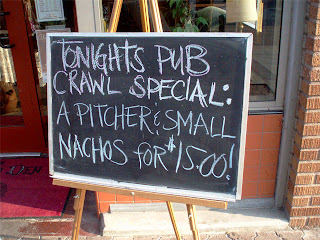 TONIGHTS PUB
CRAWL SPECIAL:
A PITCHER & SMALL
NACHOS FOR $15.00!